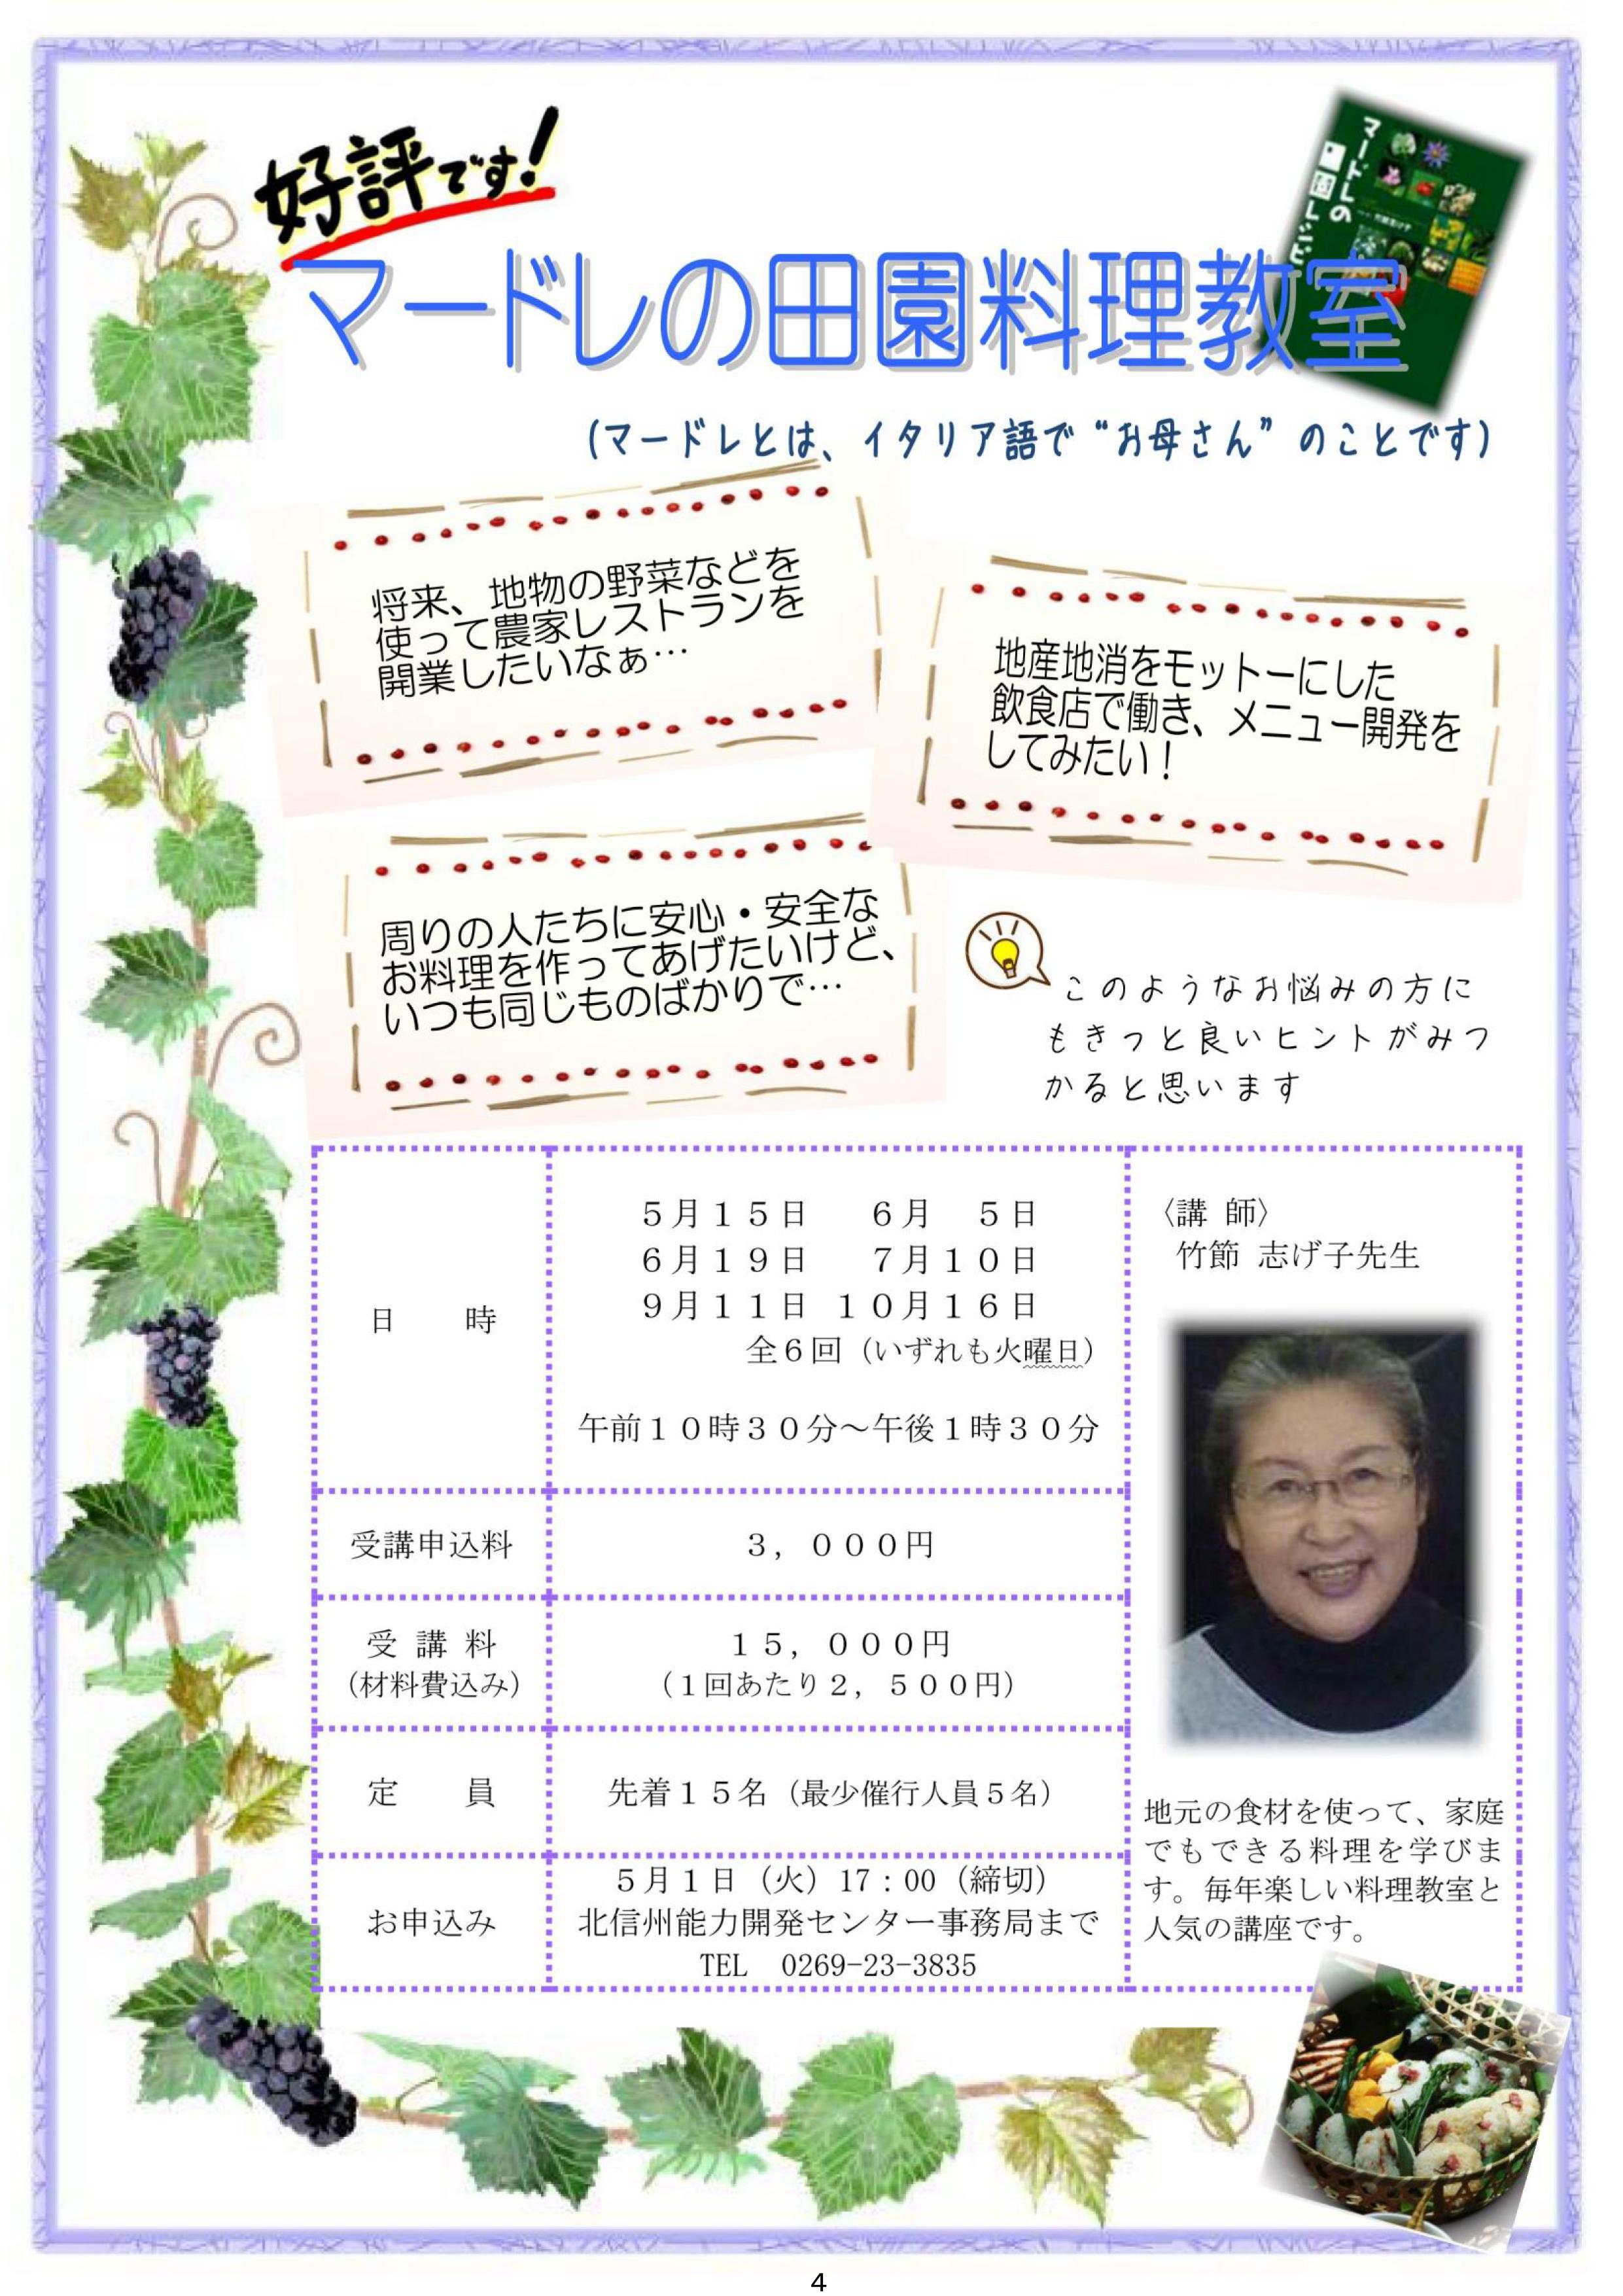 好評です！
マードレの
田園レシピ
マードレの田園料理教室
（マードレとは、イタリア語で“お母さん”のことです）
将来、地物の野菜などを
使って農家レストランを
開業したいなぁ…
地産地消をモットーにした
飲食店で働き、メニュー開発を
してみたい！
周りの人たちに安心・安全な
お料理を作ってあげたいけど、
いつも同じものばかりで…
このようなお悩みの方に
もきっと良いヒントがみつ
かると思います
日　　時
５月１５日　　６月　５日
６月１９日　　７月１０日
９月１１日　１０月１６日
全６回（いずれも火曜日）
午前１０時３０分～午後１時３０分
受講申込料
３，０００円
受 講 料
（材料費込み）
１５，０００円
（１回あたり２，５００円）
定　　員
先着１５名（最少催行人員５名）
お申込み
５月１日（火）17：00（締切）
北信州能力開発センター事務局まで
TEL　0269-23-3835
〈講 師〉
竹節 志げ子先生
地元の食材を使って、家庭
でもできる料理を学びま
す。毎年楽しい料理教室と
人気の講座です。
4